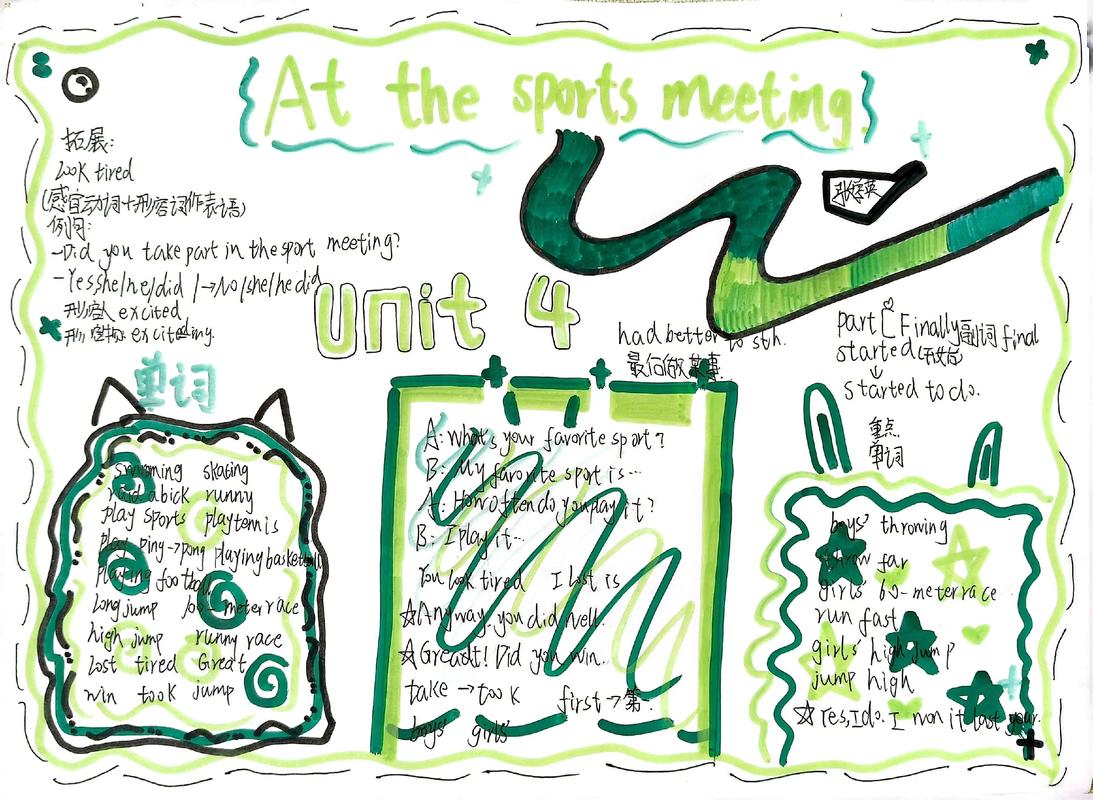 {At the sports meeting.}
拓展:
Look tired
(感官动词+形容词作表语)
例句:
-Did you take part in the sport meeting?
-Yes,she/he/did /→No/she/he did
形容人 excited
形容物
Unit 4
had better to sth.
最何做某事
part Finally副词 final
started
started to do.
单词
swimming skating
abick runny
play sports playtennis
play ping→pong playing basketball
playing football
Long jump 100-meter race
high jump runny race
Lost tired Great
win took jump
A: What's your favorite sport?
B: My favorite sport is…
A: How often do you pay it?
B: I play it…
You look tired I Lost is
☆Anyway. you did well.
☆Greadt! Did you win..
take →took first→第.
boys' girls'
重点
单词
boys' throwing
throw far
girls' 60-meter race
run fast
girls' high jump
jump high
☆Yes,I do. I won it last year.